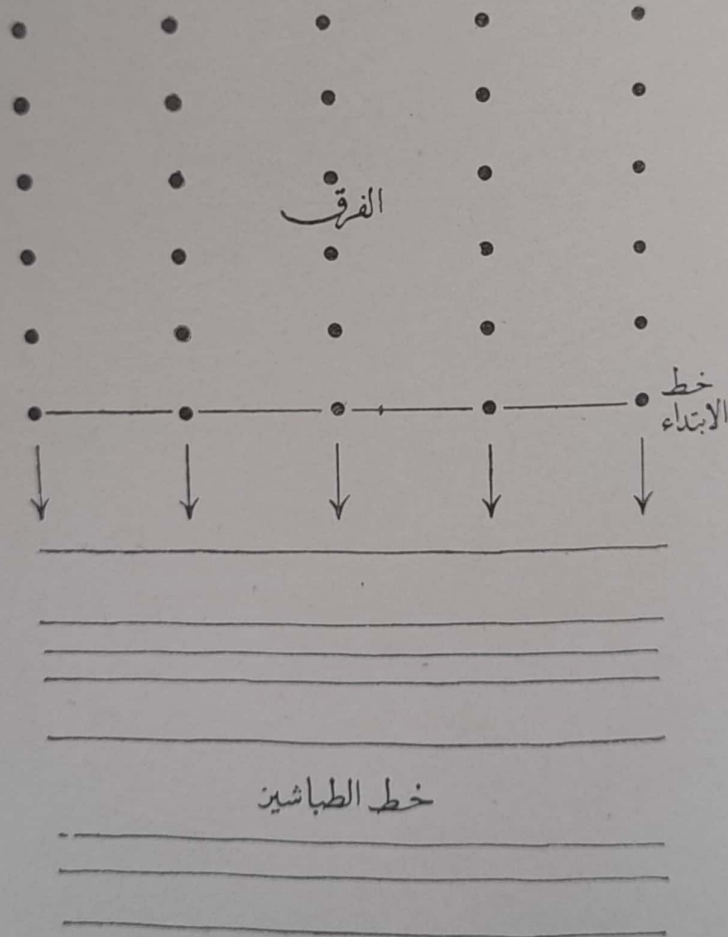 الفرق
خط
الابتداء
خط الطباشير